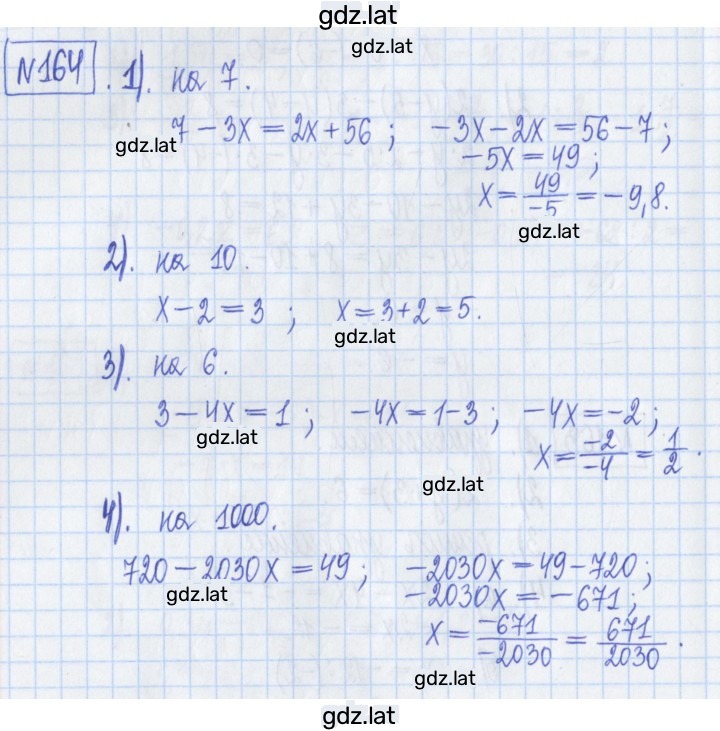 gdz.lat
gdz.lat
№164. 1). на 7.
7 − 3x = 2x + 56 ; −3x − 2x = 56 − 7 ;
gdz.lat
−5x = 49 ;
x = 49/−5 = −9,8.
gdz.lat
2). на 10.
x − 2 = 3 ; x = 3 + 2 = 5.
gdz.lat
3). на 6.
3 − 4x = 1 ; −4x = 1 − 3 ; −4x = −2 ;
gdz.lat
x = −2/−4 = 1/2 .
gdz.lat
4). на 1000.
720 − 2030x = 49 ; −2030x = 49 − 720 ;
gdz.lat
−2030x = −671 ;
x = −671/−2030 = 671/2030 .
gdz.lat
gdz.lat